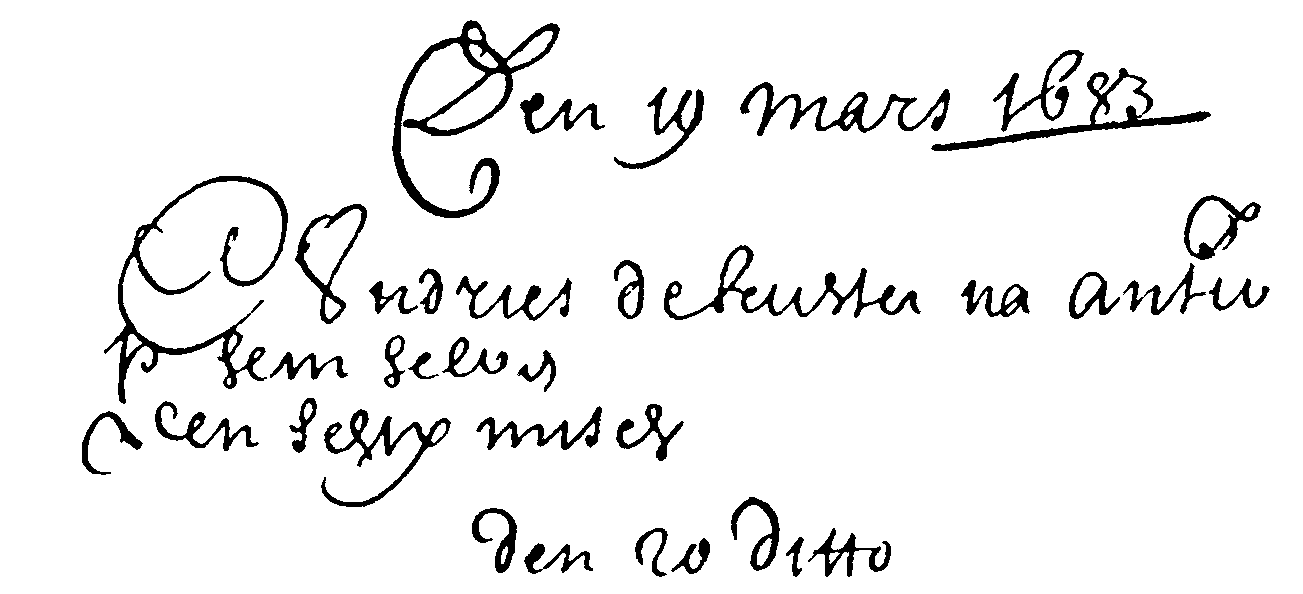 Den 19 mars 1683
Andries de keuster na antw
p hem selven
een
den 20 ditto